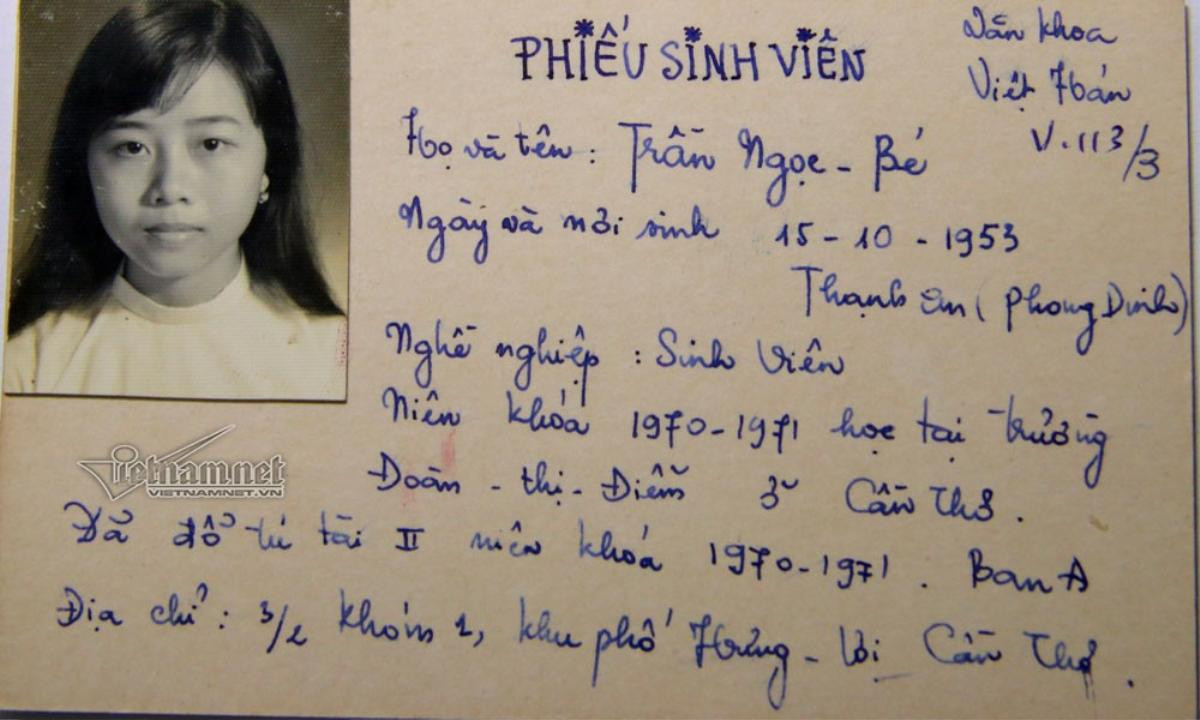 PHIẾU SINH VIÊN
Văn khoa
Việt Hán
V.113/3
Họ và tên : Trần Ngọc - Bé
Ngày và nơi sinh 15 - 10 - 1953
Thạnh an ( Phong Dinh)
Nghề nghiệp : Sinh Viên
Niên khóa 1970-1971 học tại trường
Đoàn - thị - Điểm Cần Thơ .
Đã đổ tú tài II niên khoá 1970-1971 . Ban A
Địa chỉ : 3/2 khóm 1, khu phố Hưng - Lợi Cần Thơ .
Vietnamnet
VIETNAMNET.VN